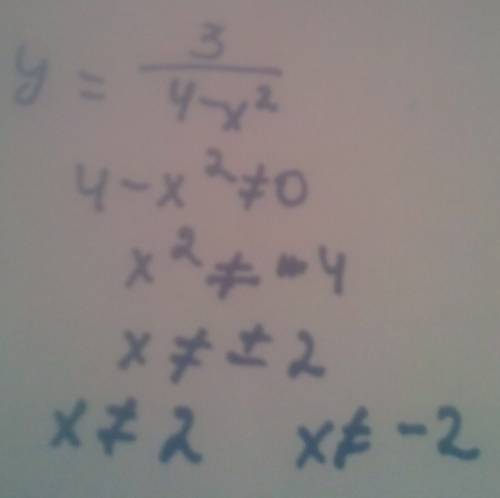 y = 3/(4-x²)
4-x²≠0
x²≠-4
x≠±2
x≠2 x≠-2